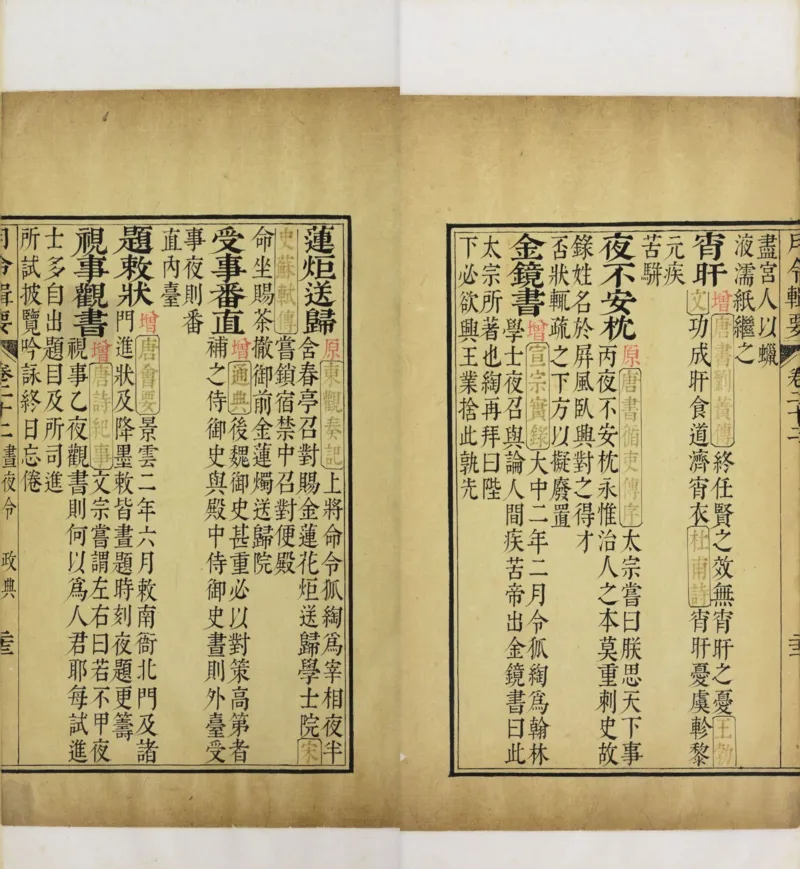 月令輯要 卷二十二
盡宮人以蠟
液濡紙繼之
宵旰 增唐書劉蕡傳終任賢之效無宵旰之憂王勃
文功成旰食道濟宵衣杜甫詩宵旰憂虞軫黎
元疾
苦駢
夜不安枕 原唐書循吏傳序太宗嘗曰朕思天下事
丙夜不安枕永惟治人之本莫重刺史故
錄姓名於屏風臥興對之得才
否狀輒疏之下方以擬廢置
金鏡書 增宣宗實錄大中二年二月令狐綯爲翰林
學士夜召與論人間疾苦帝出金鏡書曰此
太宗所著也綯再拜曰陛
下必欲興王業捨此孰先
蓮炬送歸 原東觀奏記上將命令狐綯爲宰相夜半
含春亭召對賜金蓮花炬送歸學士院宋
史蘇軾傳嘗鎖宿禁中召對便殿
命坐賜茶撤御前金蓮燭送歸院
受事番直 增通典後魏御史甚重必以對策高第者
補之侍御史與殿中侍御史晝則外臺受
事夜則番
直內臺
題敕狀 增唐會要景雲二年六月敕南衙北門及諸
門進狀及降墨敕皆晝題時刻夜題更籌
視事觀書 增唐詩紀事文宗嘗謂左右曰若不甲夜
視事乙夜觀書則何以爲人君耶每試進
士多自出題目及所司進
所試披覽吟詠終日忘倦
月令輯要 卷二十二 晝夜令 政典